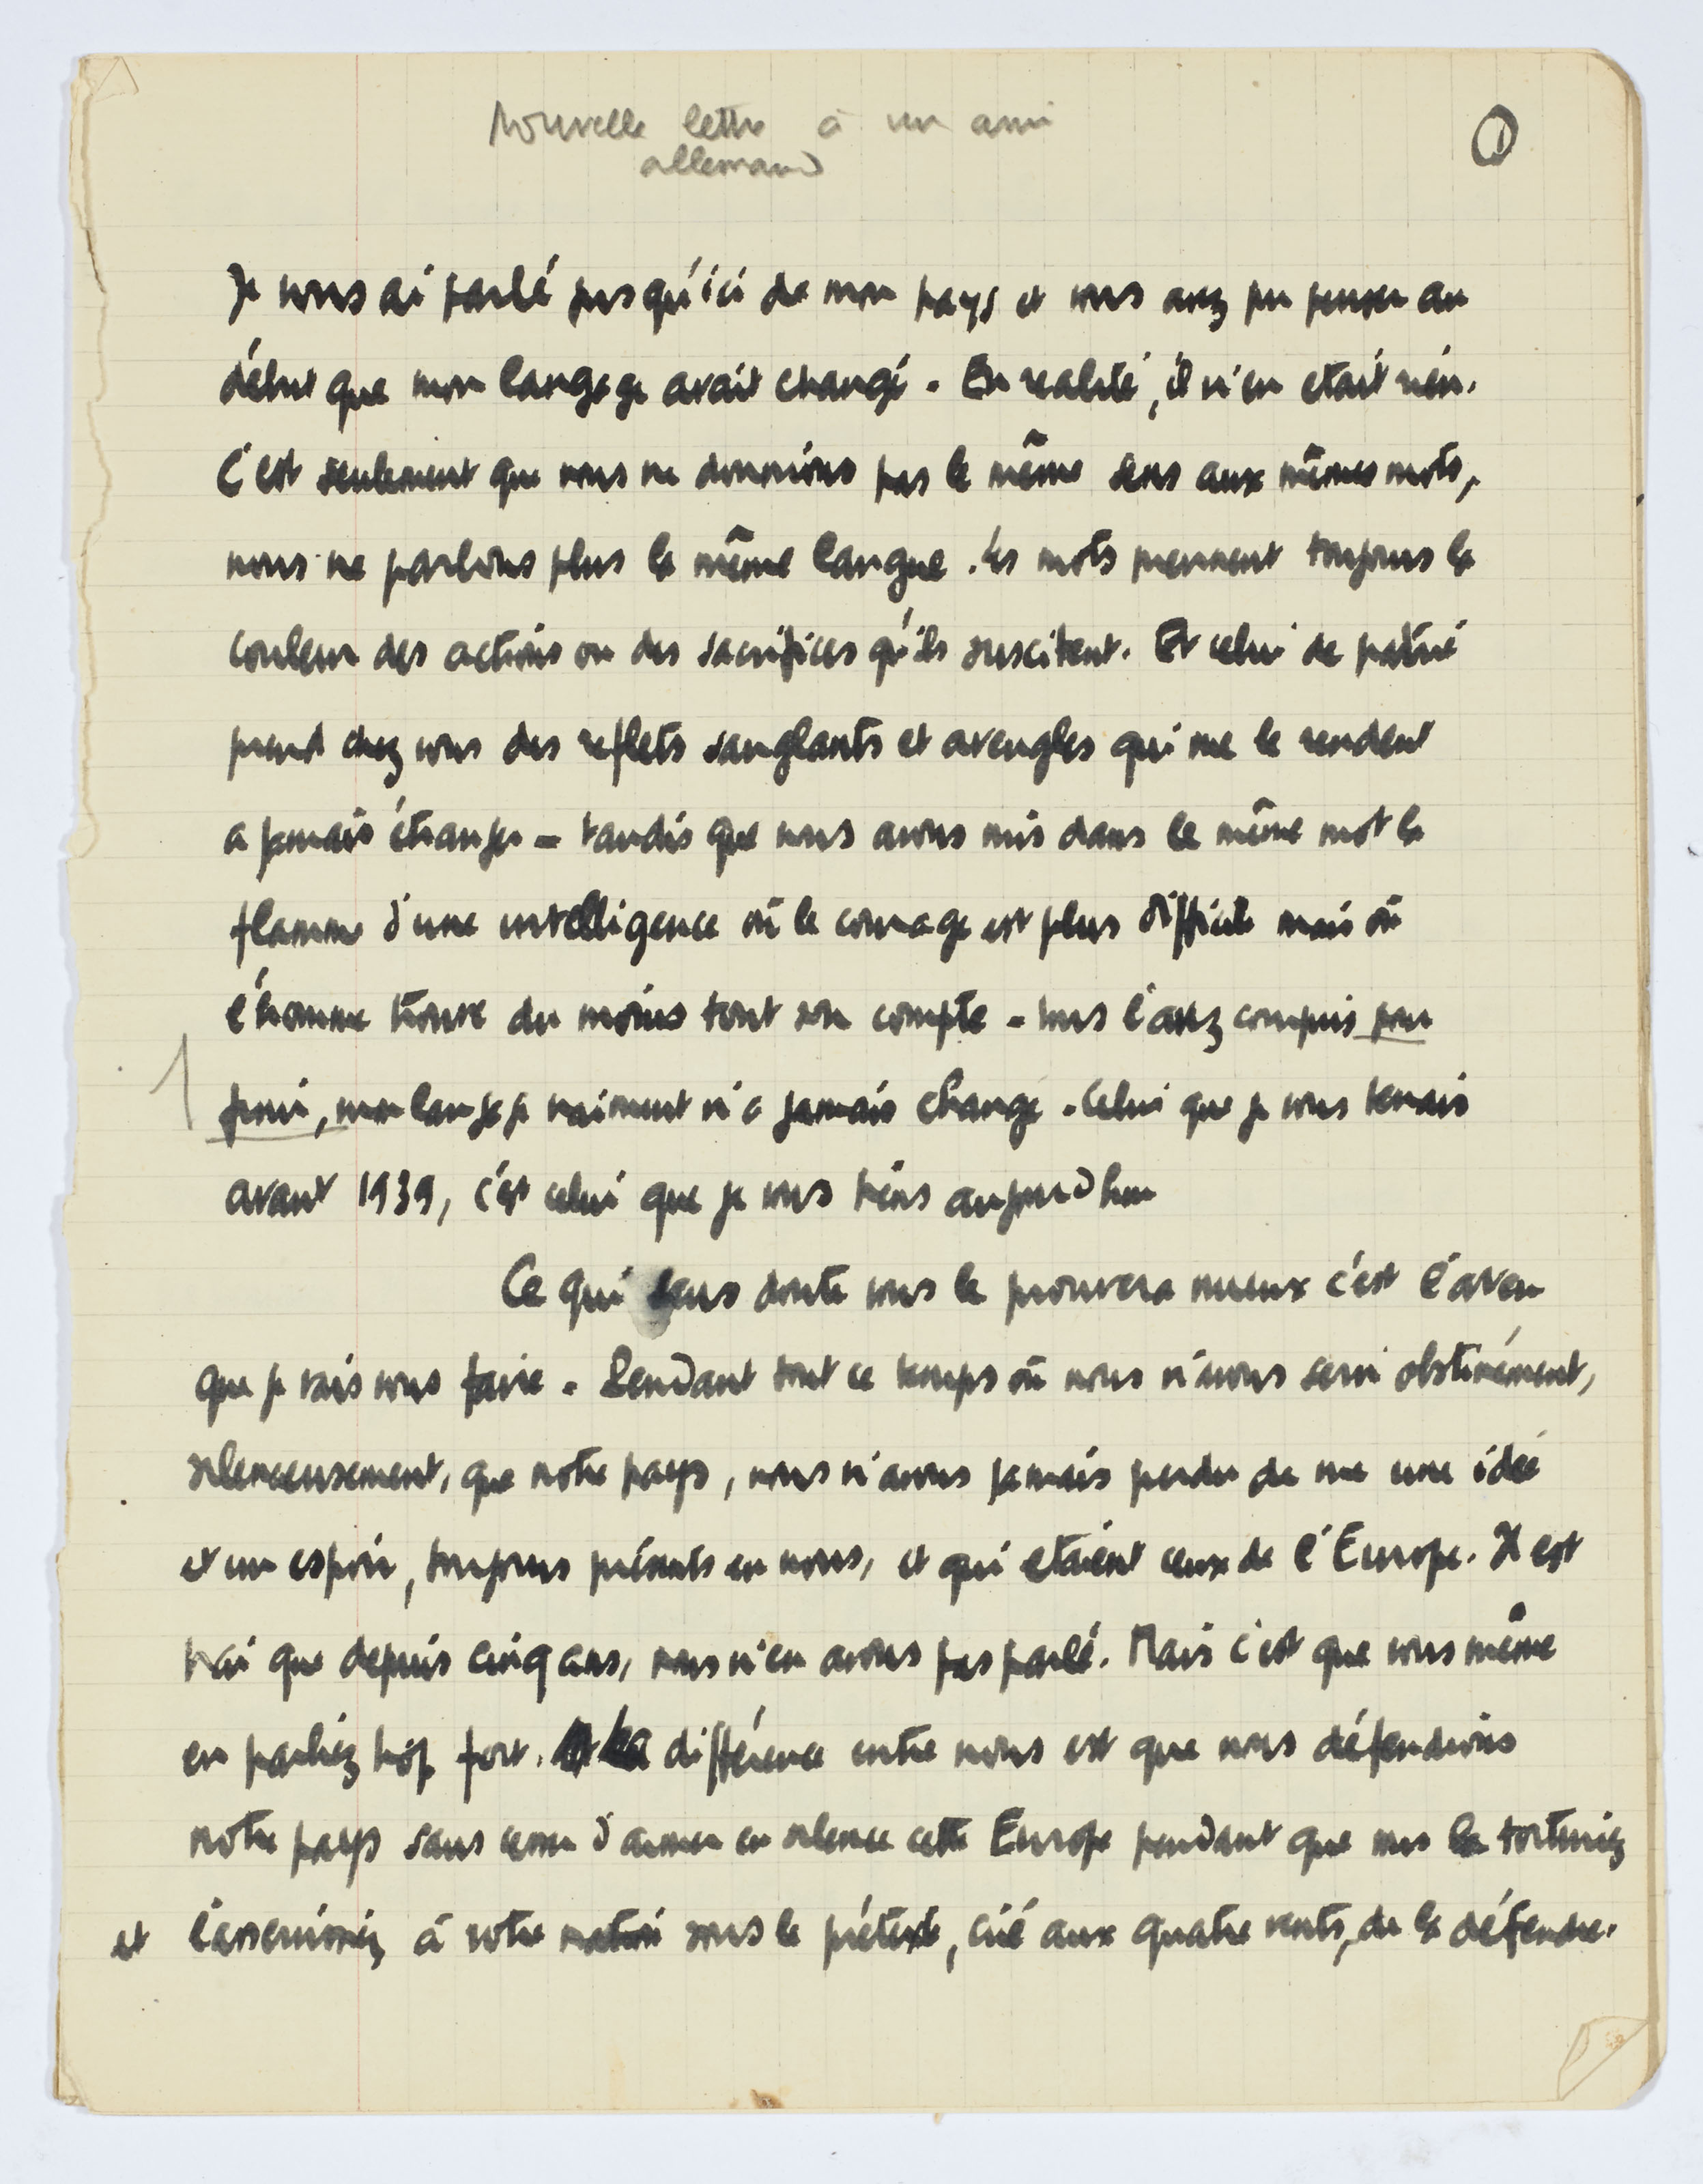 Nouvelle lettre à un ami
allemand
1
Je vous ai parlé jusqu'ici de mon pays et vous avez pu penser au
début que mon langage avait changé. En realité, il n'en etait rien.
C'est seulement que nous ne donnions pas le même sens aux mêmes mots,
nous ne parlions plus la même langue. Les mots prennent toujours la
couleur des actions ou des sacrifices qu'ils suscitent. Et celui de patrie
prend chez vous des reflets sanglants et aveugles qui me le rendent
a jamais étranger - tandis que nous avons mis dans le même mot la
flamme d'une intelligence où le courage est plus difficile mais où
l'homme trouve du moins tout son compte - Vous l'avez compris pour
finir, mon langage vraiment n'a jamais changé. Celui que je vous tenais
avant 1939, c'est celui que je vous tiens aujourd hui
Ce qui sans doute vous le prouvera mieux c'est l'aveu
que je vais vous faire. Pendant tout ce temps où nous n'avons servi obstinément,
silencieusement, que notre pays, nous n'avons jamais perdu de vue une idée
et un espoir, toujours présents en nous, et qui etaient ceux de l'Europe. Il est
vrai que depuis cinq ans, nous n'en avons pas parlé. Mais c'est que vous même
en parliez trop fort. La différence entre nous est que nous défendions
notre pays sans cesser d'aimer en silence cette Europe pendant que vous la torturiez
et l'asserviriez à votre nation sous le prétexte, crié aux quatre vents, de la défendre.